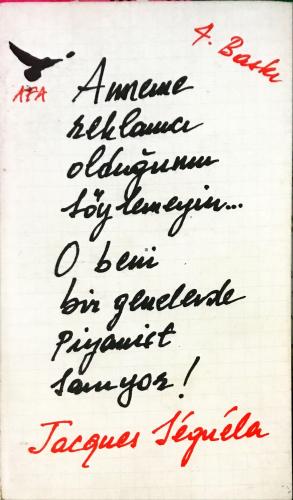 AFA
4. Baskı
Anneme
reklamcı
olduğumu
söylemeyin...
O beni
bir genelevde
Piyanist
sanıyor!
Jacques Séguéla